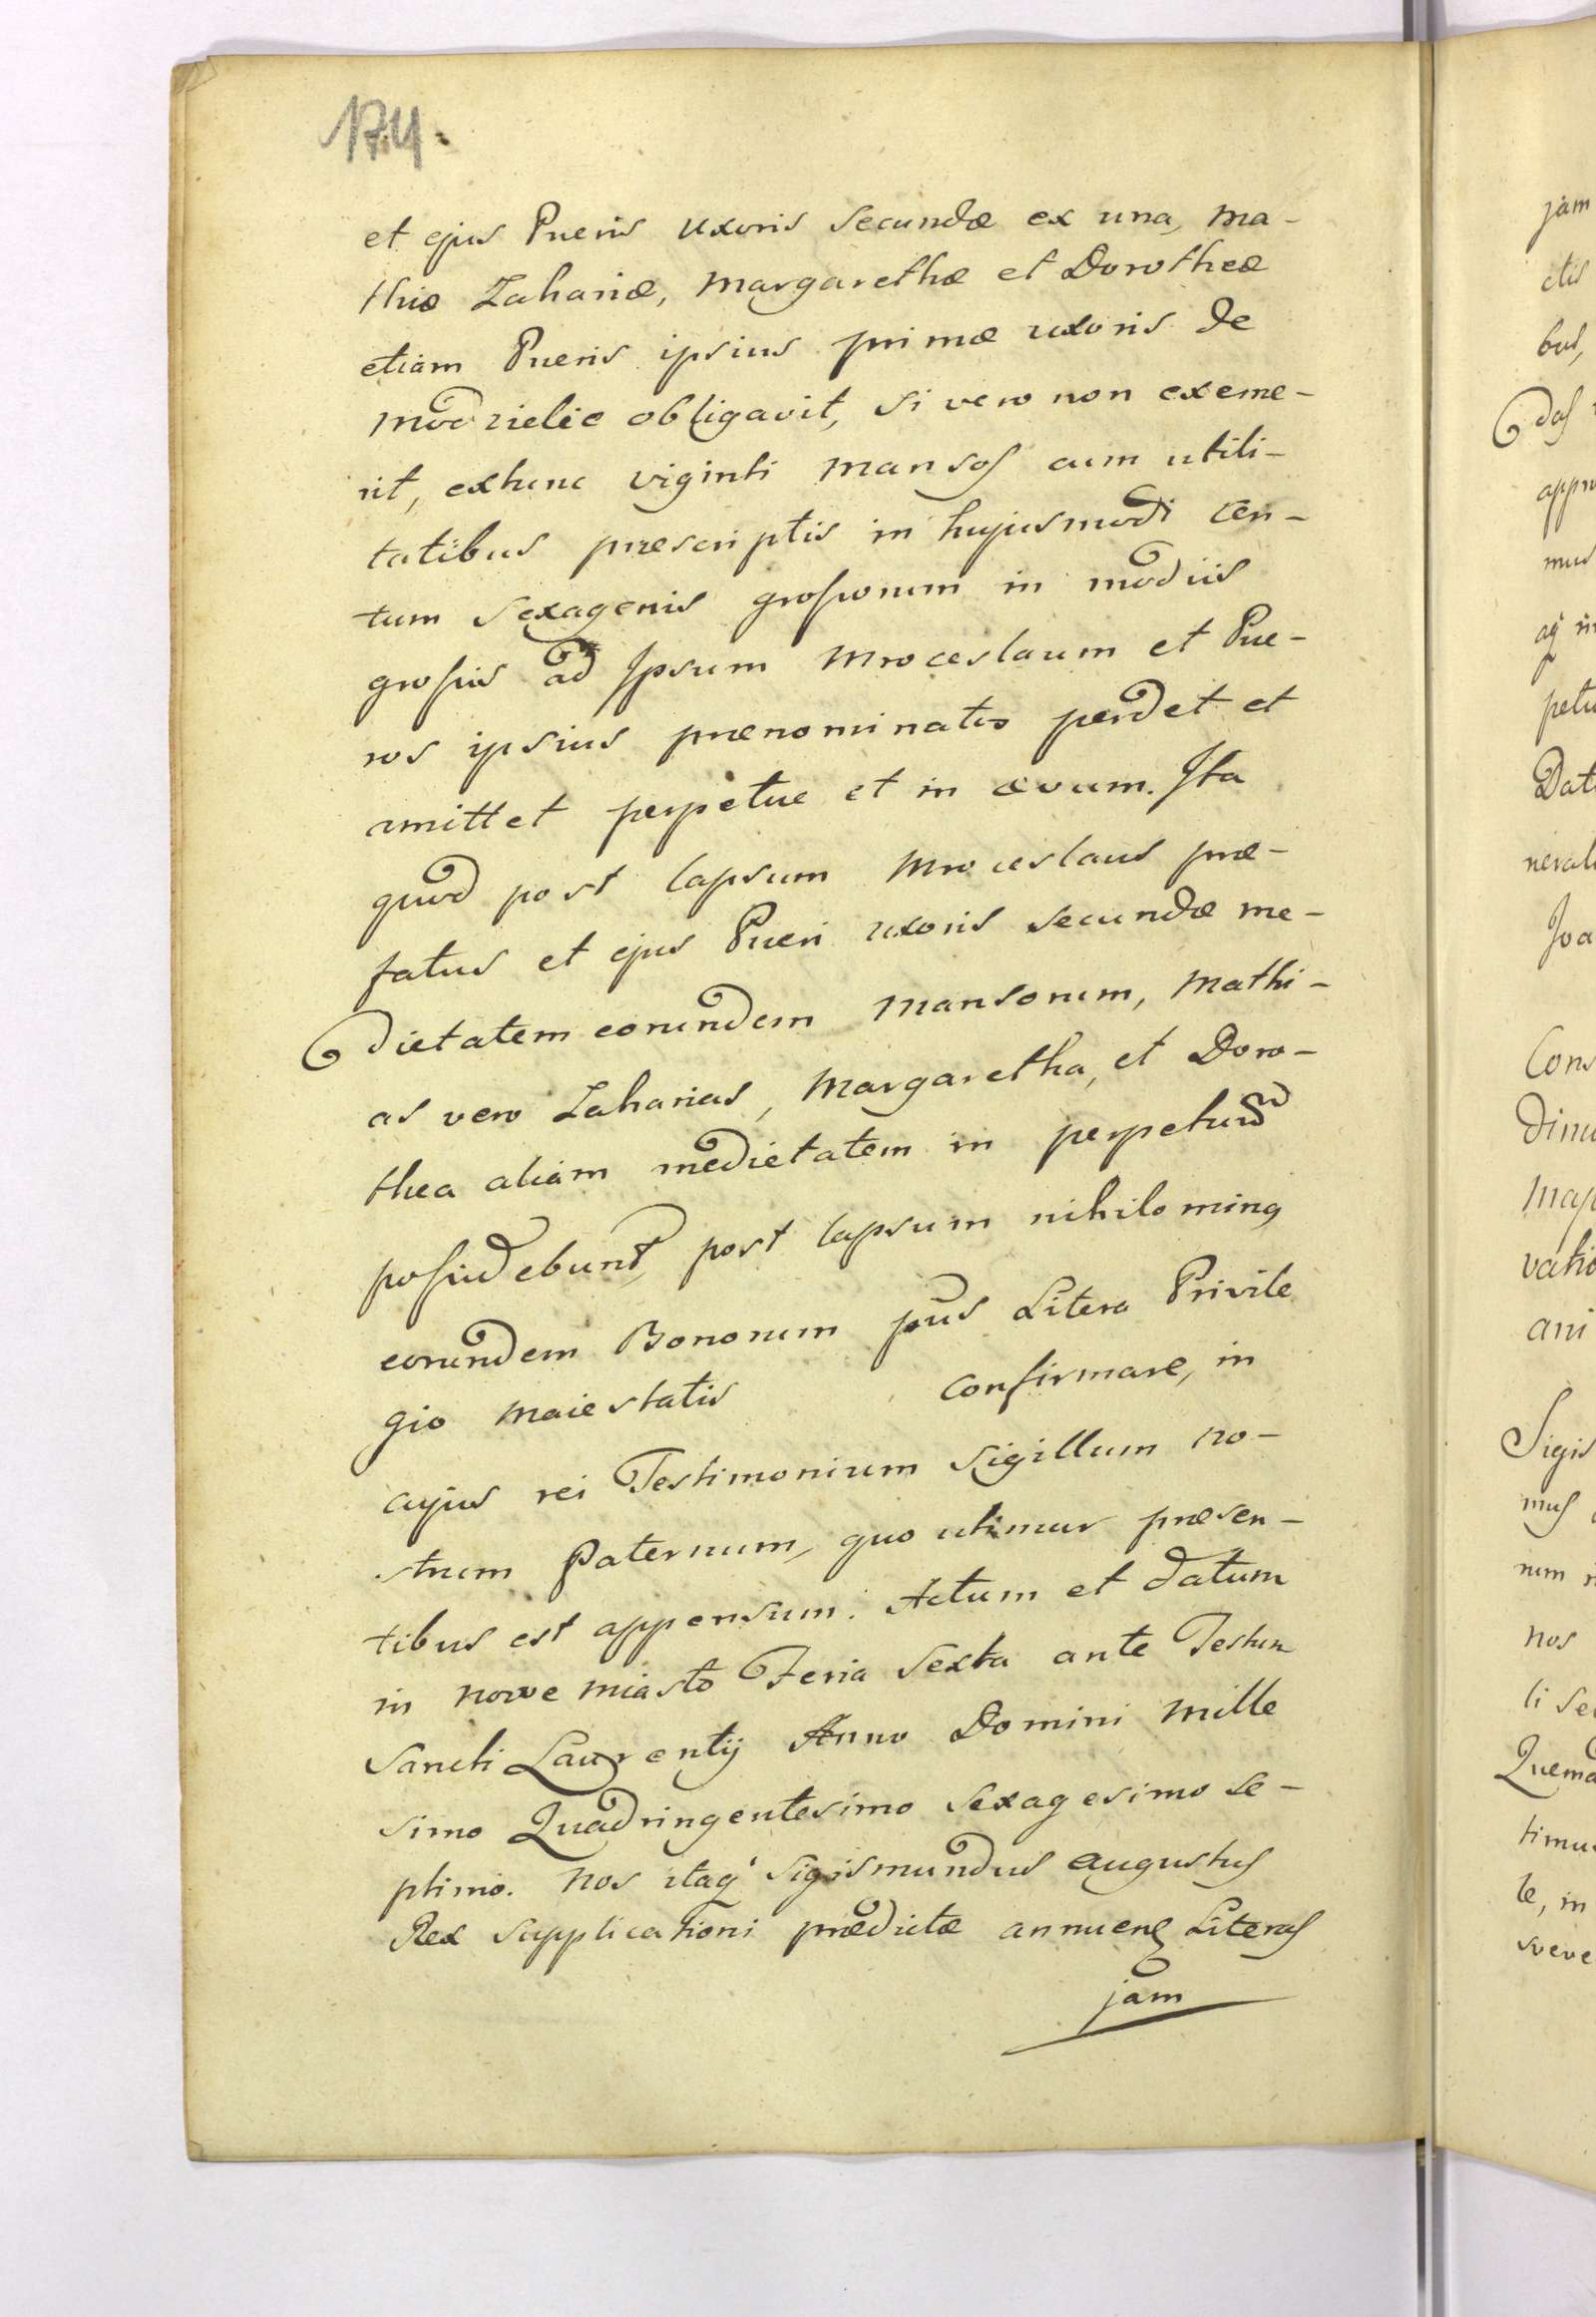 174.
et ejus Pueris Uxoris Secundæ ex una, Ma-
thiæ Zahariæ, Margarethæ et Dorotheæ
etiam Pueris ipsius primæ uxoris de
Modzielie obligavit, si vero non exeme-
rit, extunc viginti Mansos cum utili-
tatibus præscriptis in hujusmodi Cen-
tum Sexagenis grossorum in mediis
grossis ad Ipsum Mroceslaum et Pue-
ros ipsius prænominatos perdet et
amittet perpetue et in ævum. Ita
quod post lapsum Mroceslaus præ-
fatus et ejus Pueri uxoris secundæ me-
dietatem eorundem Mansorum, Mathi-
as vero Zaharias, Margaretha, et Doro-
thea aliam medietatem in perpetuum
possidebunt, post lapsum nihilominq
eorundem Bonorum jus Litera Privile
gio Maiestatis confirmare, in
cujus rei Testimonium Sigillum no-
strum Paternum, quo utimur præsen-
tibus est appensum. Actum et datum
in Nowe Miasto Feria Sexta ante Festum
Sancti Laurentij Anno Domini Mille
simo Quadringentesimo Sexagesimo Se-
ptimo. Nos itaq Sigismundus Augustus
Rex Supplicationi prædictæ annuens Literas
jam
jam
ctis
bus,
das
mus
Dat
Joa
Cons
vatio
ani
Sigis
mus
num
nos
li Se
Quema
timus
le, in